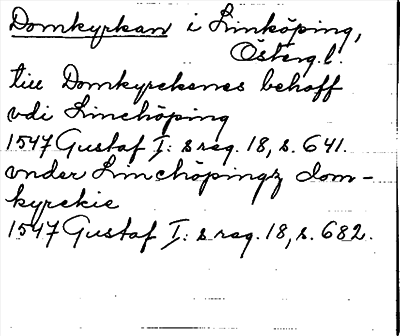 Domkyrkan i Linköping,
Österg. l.
till Domkyrckones behoff
vdi Linchöping
1547 Gustaf I:s reg. 18, s. 641.
vnder Linchöpingz dom-
kyrckie
1547 Gustaf I:s reg. 18, s. 682.